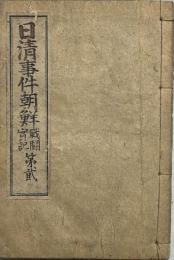 日清事件朝鮮戰鬪實記第貳